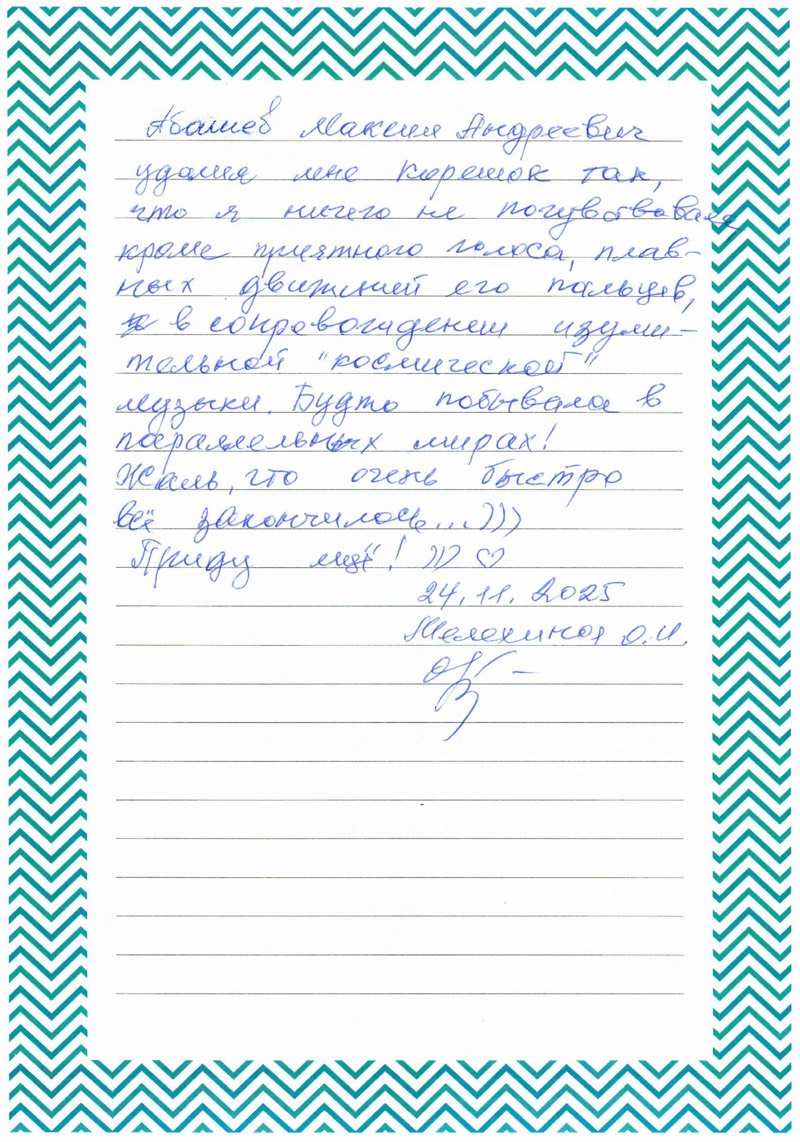 Абашев Максим Андреевич
удалил мне корешок так,
что я ничего не почувствовала
кроме приятного голоса, плав-
ных движений его пальцев,
в сопровождении изуми-
тельной "космической"
музыки. Будто побывала в
параллельных мирах!
Жаль, что очень быстро
всё закончилось...)))
Приду ещё! ))) ♡
24.11.2025
Мелехина О.И.